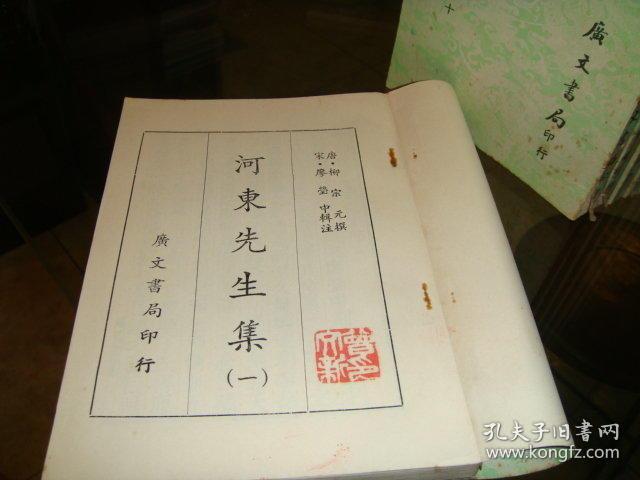 唐·柳宗元撰
宋·廖瑩中輯注
河東先生集
(一)
廣文書局印行
十
廣文書局印行
孔夫子旧书网
www.kongfz.com